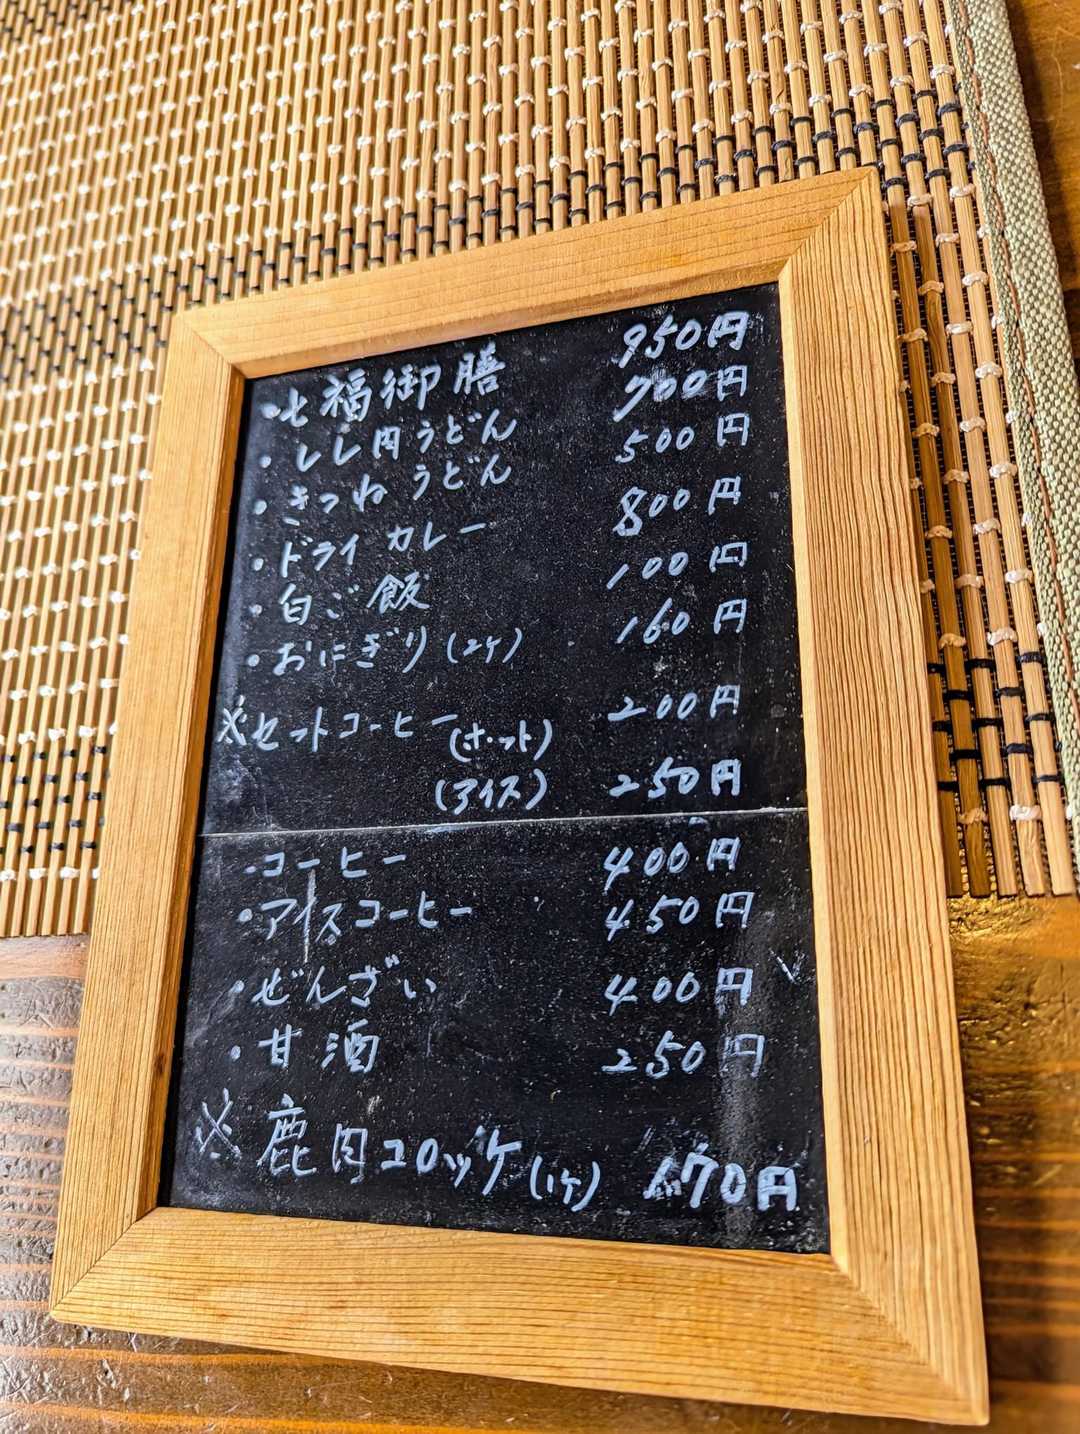 ・七福御膳 950円
・しし肉うどん 700円
・きつねうどん 500円
・ドライカレー 800円
・白ご飯 100円
・おにぎり(2ケ) 160円
※セットコーヒー(ホット) 200円
(アイス) 250円
・コーヒー 400円
・アイスコーヒー 450円
・ぜんざい 400円
・甘酒 250円
※鹿肉コロッケ(1ケ) 170円